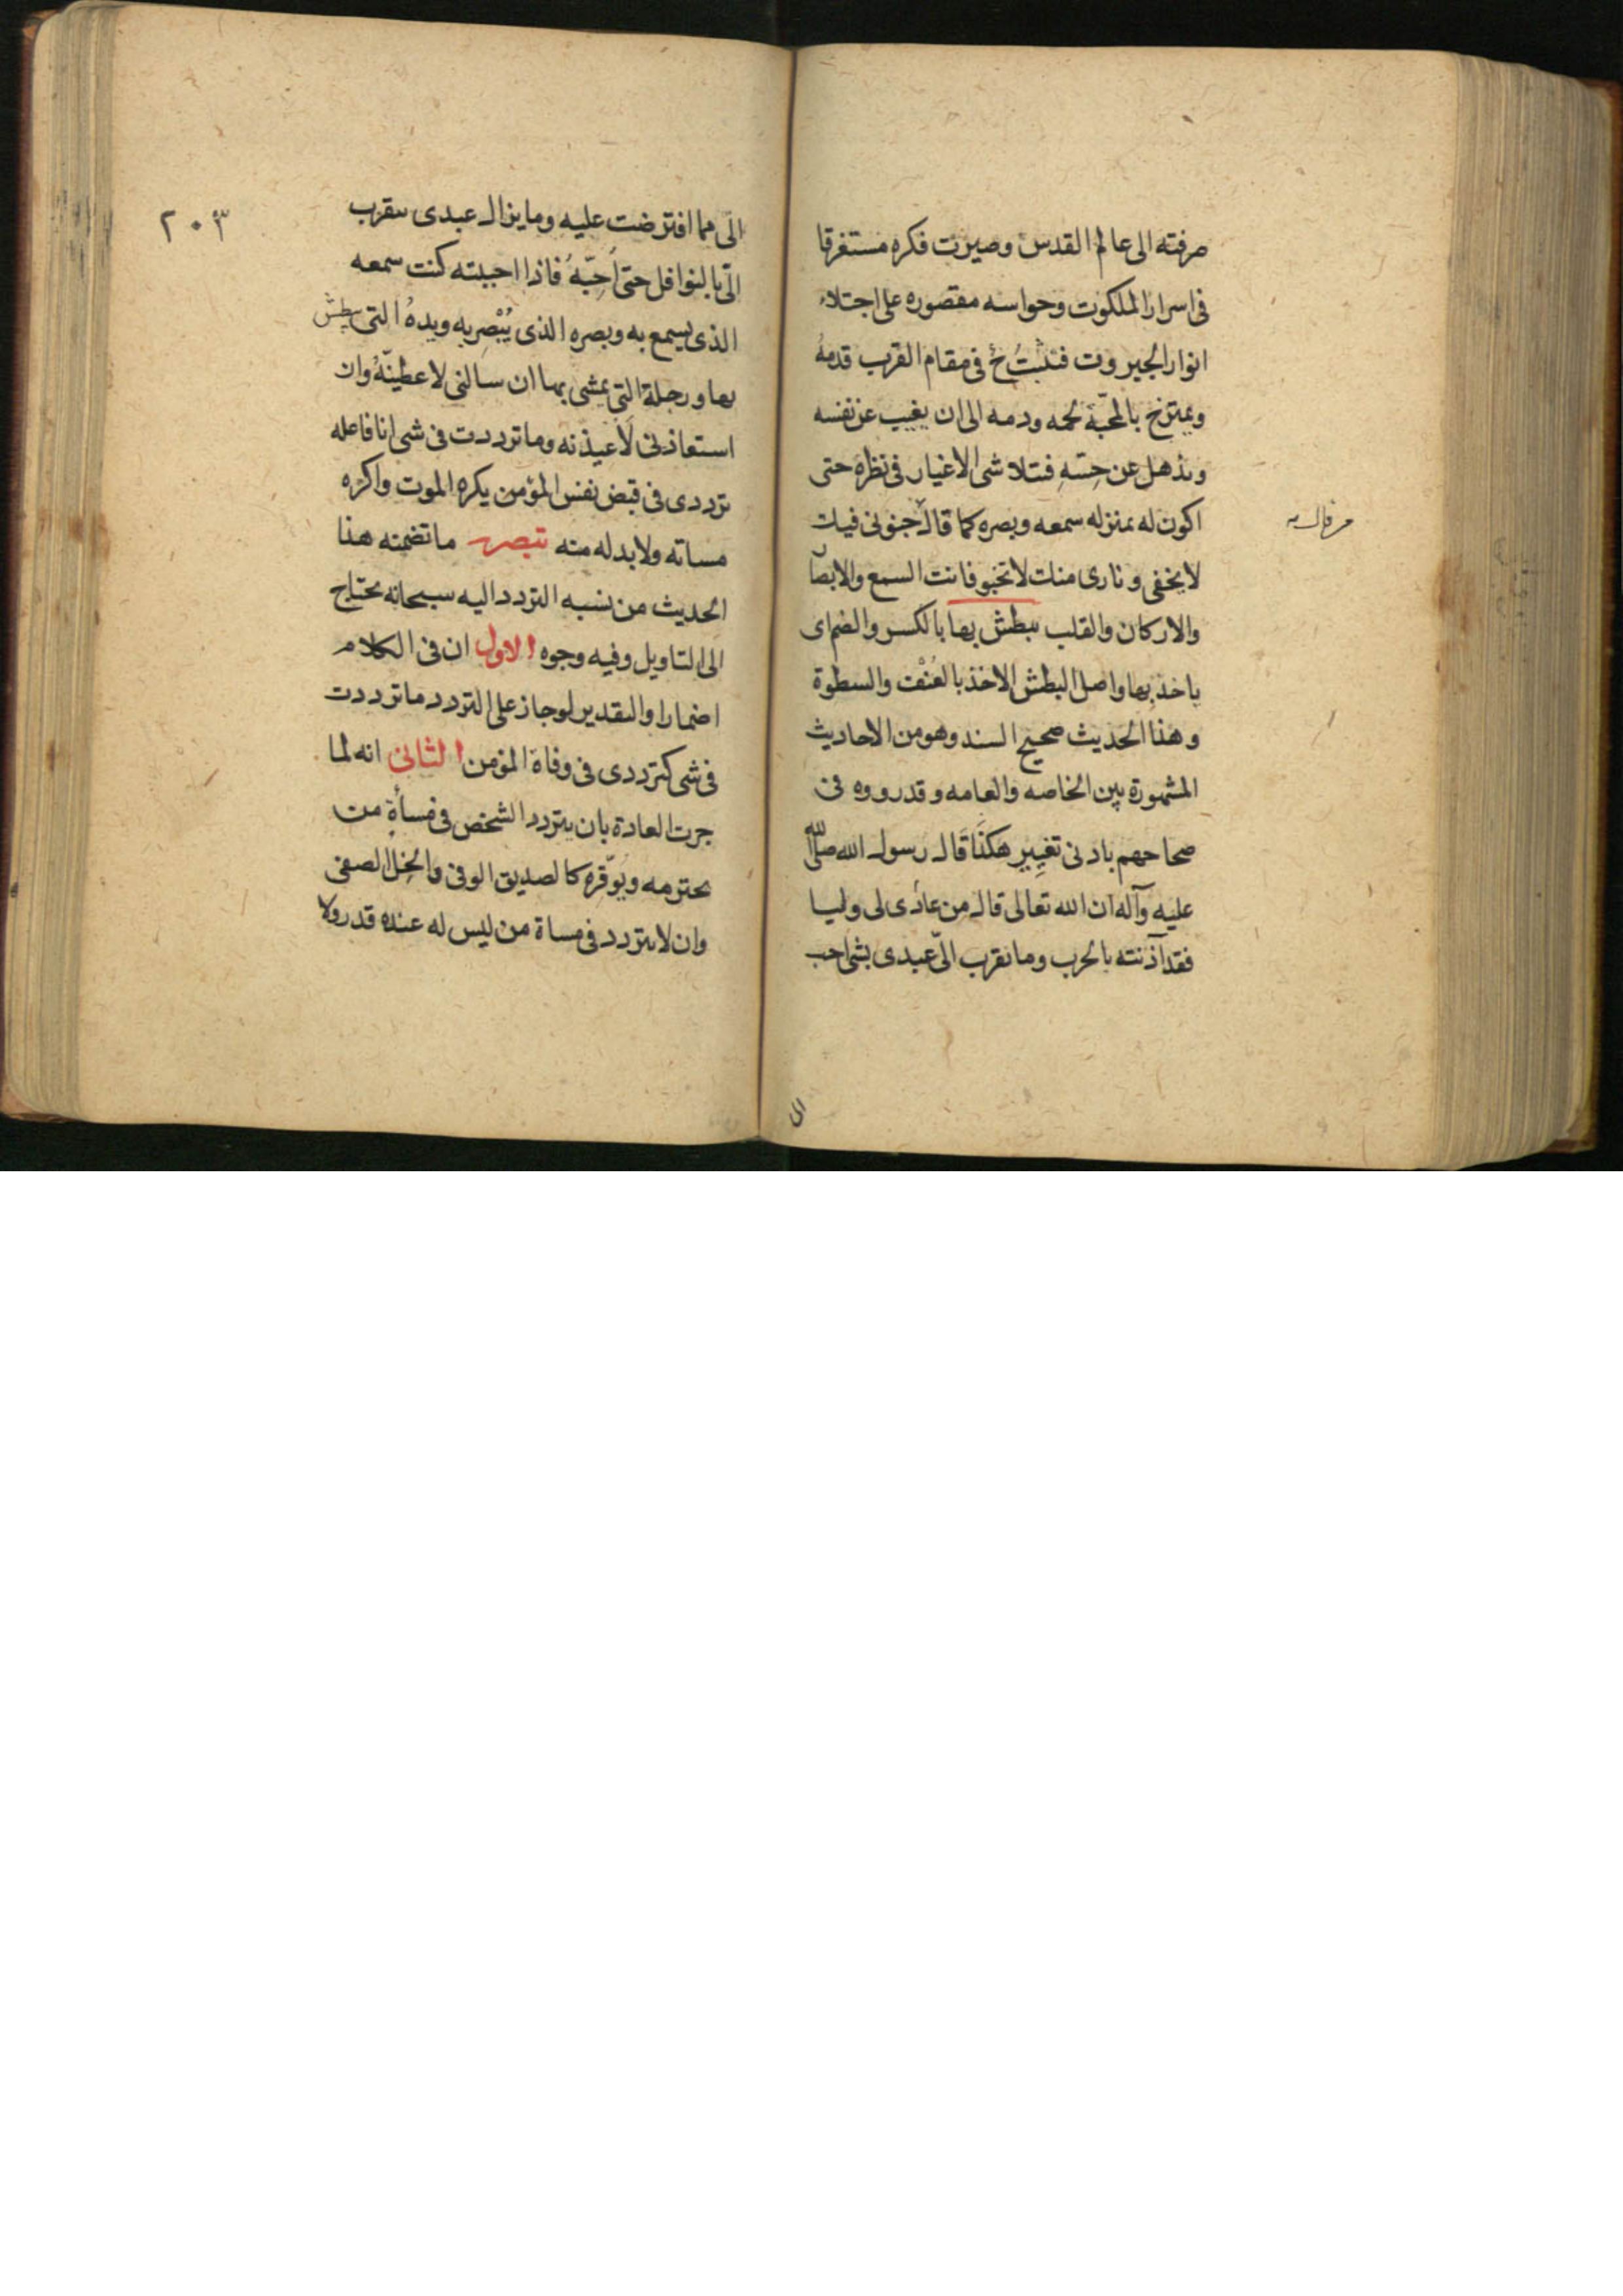 صرفته الى عالم القدس وصيرت فكره مستغرقا
فى اسرار الملكوت وحواسه مقصوره على اجتلاء
انوار الجبروت فتثبتُ حٓ فى مقام القرب قدمهُ
ويمتزج بالمحبّة لحمه ودمه الى ان يغيب عن نفسه
ويذهل عن حِسّهِ فتتلاشى الاغيار فى نظره حتى
اكون له بمنزله سمعه وبصره كما قال جنونى فيك
من قال
لا يخفى ونارى منك لا تخبو فانت السمع والابصا
والاركان والقلب يبطش بها بالكسر والضم اى
ياخذ بها واصل البطش الاخذ بالعُنْف والسطوة
وهذا الحديث صحيح السند وهو من الاحاديث
المشهورة بين الخاصه والعامه وقد رووه فى
صحاحهم بادنى تغيير هكذا قال رسول الله صلى الله
عليه وآله ان الله تعالى قال من عادى لى وليا
فقد آذنته بالحرب وما تقرب الىّ عبدى بشى احب
الى
٢٠٣
الىّ مما افترضت عليه وما يزال عبدى يتقرب
الىّ بالنوافل حتى اُحِبّهُ فاذا احببته كنت سمعه
الذى يسمع به وبصره الذى يُبْصِر به ويدهُ التى يبطش
بها ورجله التى يمشى بها ان سالنى لاعطينّهُ وان
استعاذنى لَاعيذنه وما ترددت فى شى انا فاعله
ترددى فى قبض نفس المؤمن يكره الموت واكره
مساته ولا بد له منه تبصره ما تضمنه هذا
الحديث من نسبه التردد اليه سبحانه يحتاج
الى التاويل وفيه وجوه الاول ان فى الكلام
اضمارا والتقدير لو جاز على التردد ما ترددت
فى شى كترددى فى وفاة المؤمن الثانى انه لما
جرت العادة بان يتردد الشخص فى مساٴة من
يحترمه ويوّقره كالصديق الوفى والخِل الصفى
وان لا يتردد فى مساة من ليس له عنده قدر ولا